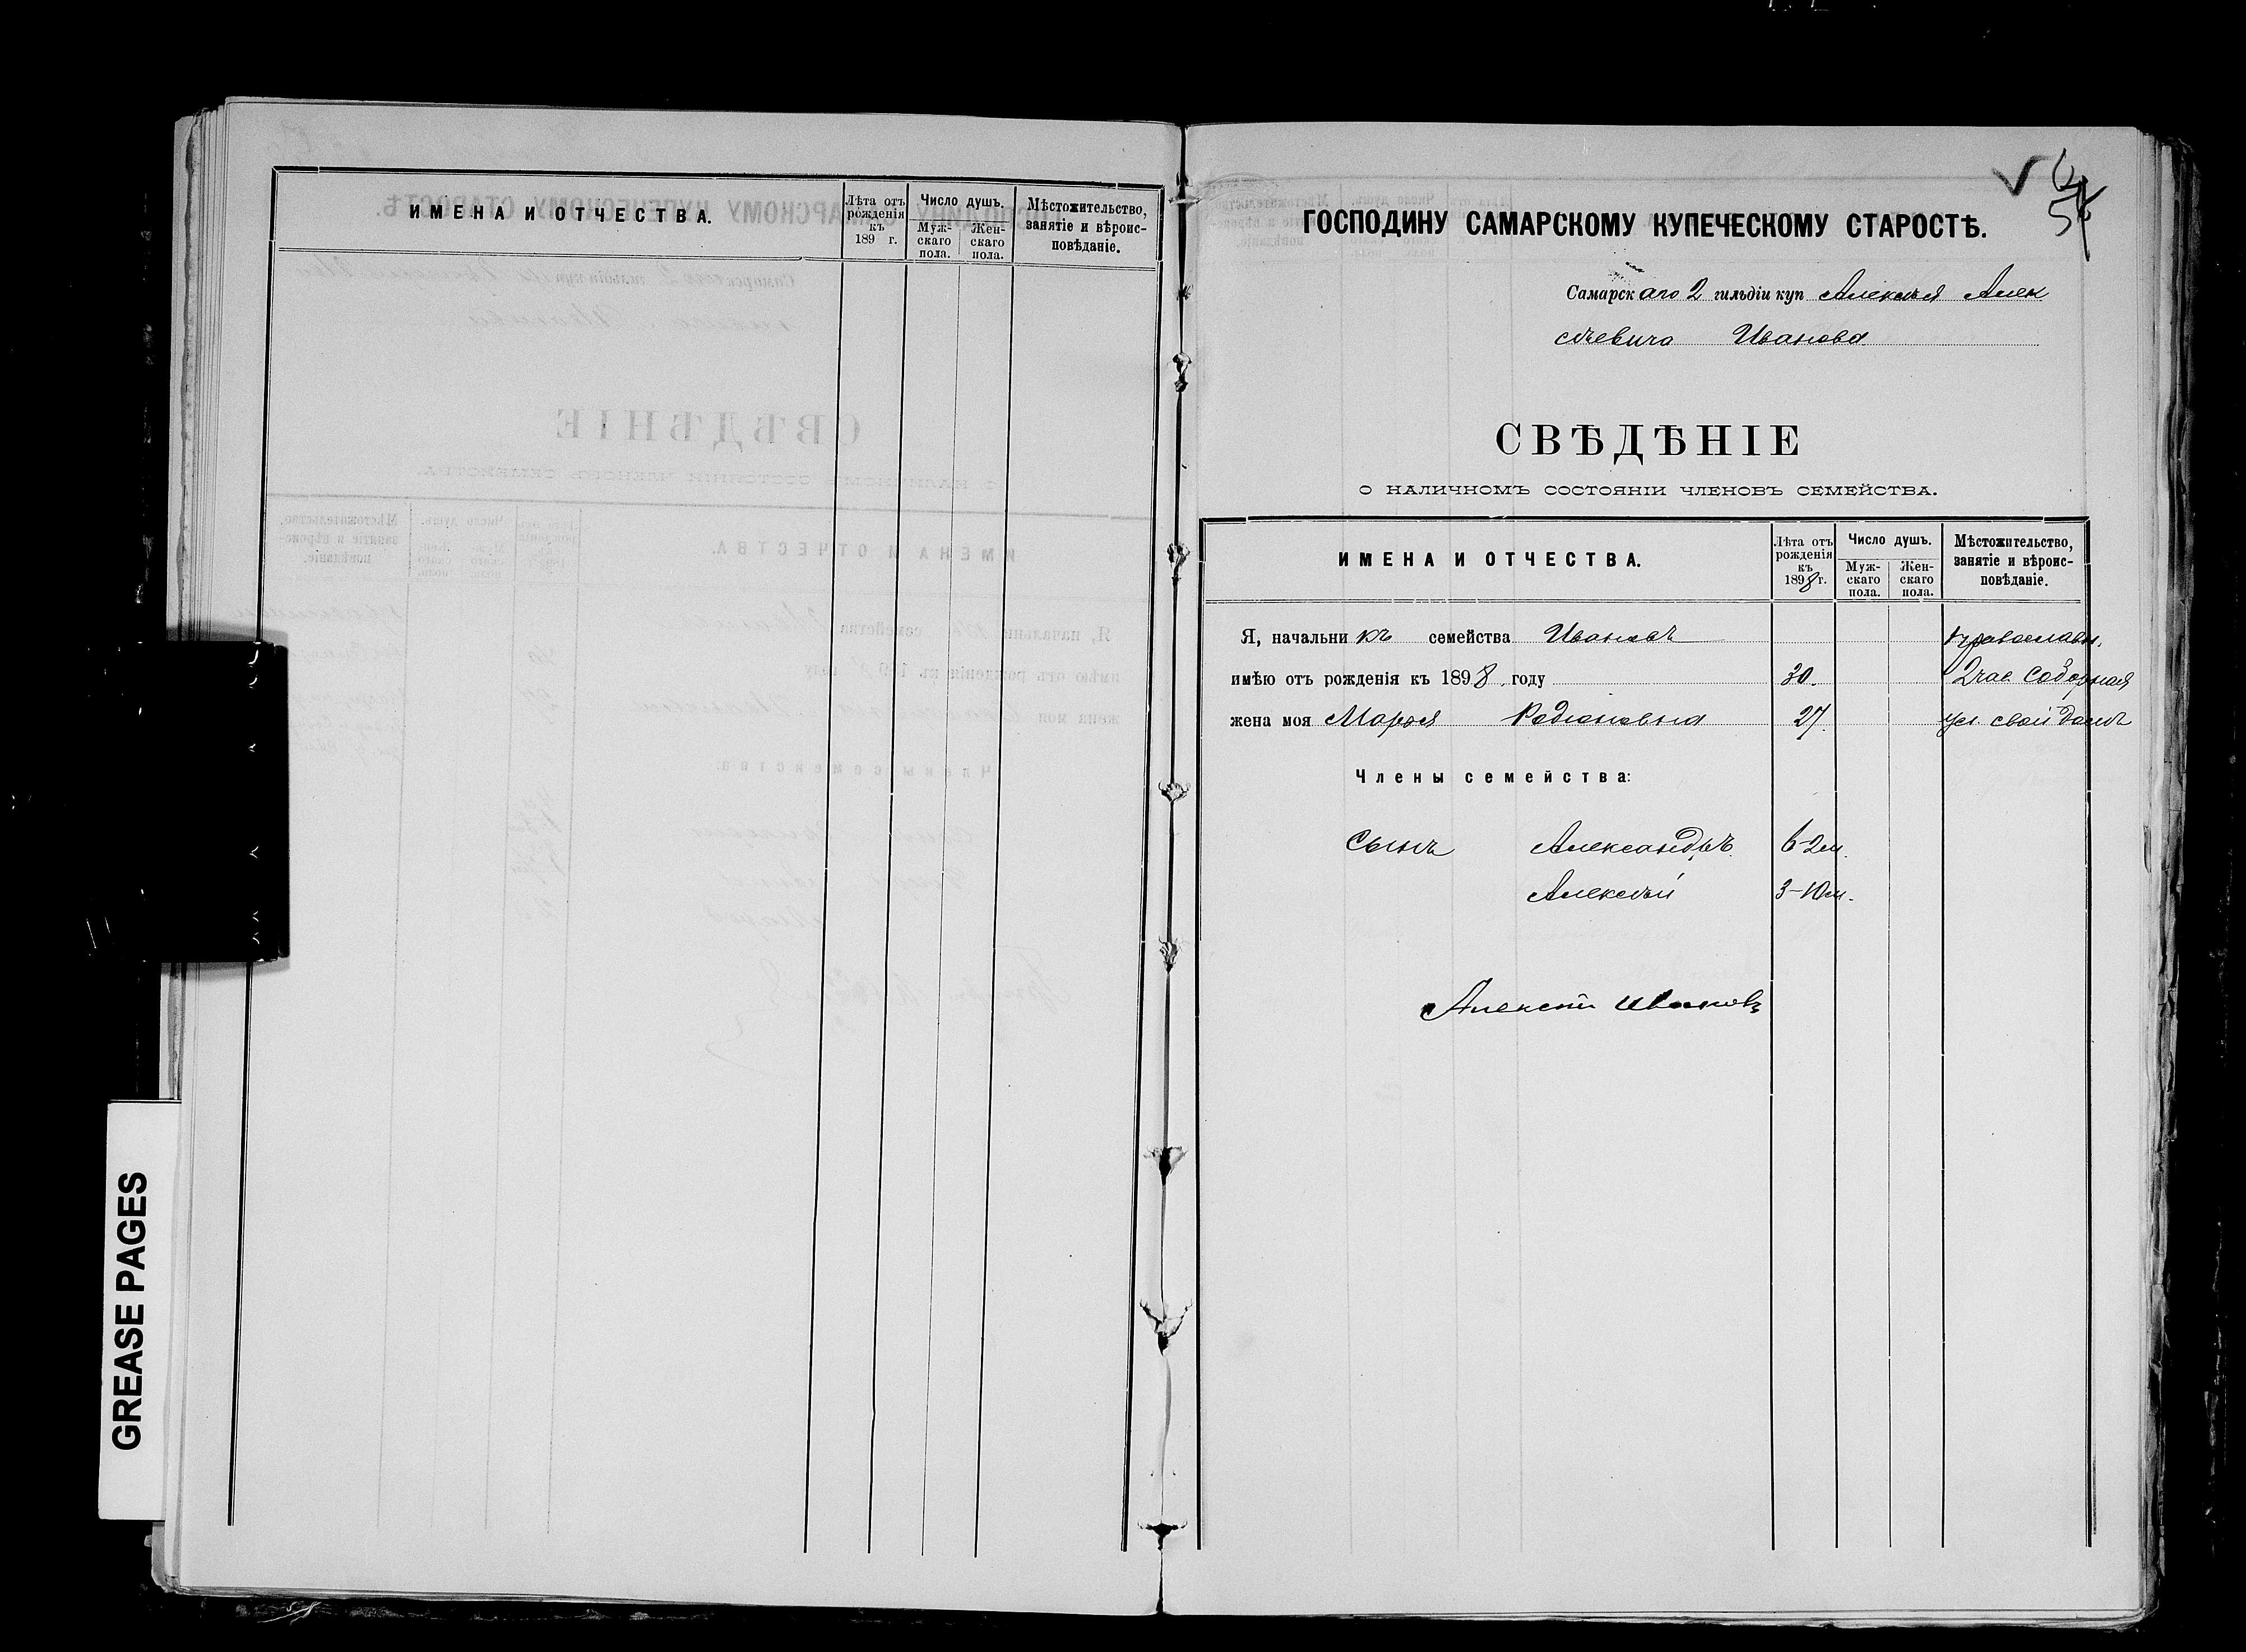 ИМЕНА И ОТЧЕСТВА.
Лѣта отъ рожденія къ 189 г.
Число душъ.
Муж-скаго пола.
Жен-скаго пола.
Мѣстожительство, занятіе и вѣроис-повѣданіе.
GREASE PAGES
ГОСПОДИНУ САМАРСКОМУ КУПЕЧЕСКОМУ СТАРОСТѢ.
Самарскаго 2 гильдіи куп Алексѣя Алек
сѣевича Иванова
СВѢДѢНІЕ
О НАЛИЧНОМЪ СОСТОЯНІИ ЧЛЕНОВЪ СЕМЕЙСТВА.
ИМЕНА И ОТЧЕСТВА.
Лѣта отъ рожденія къ 1898 г.
Число душъ.
Муж-скаго пола.
Жен-скаго пола.
Мѣстожительство, занятіе и вѣроис-повѣданіе.
Я, начальникъ семейства Ивановъ православн.
имѣю отъ рожденія къ 1898 году 30. 2 час. Соборная
жена моя Марья Родіоновна 27. ул. свой домъ
Члены семейства:
Сынъ Александръ 6-2 м.
Алексѣй 3-10 м.
Алексѣй Ивановъ